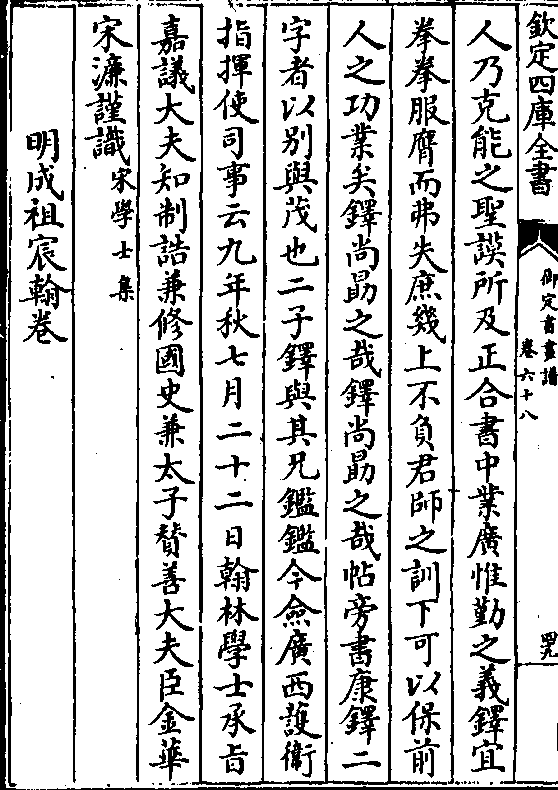 欽定四庫全書
御定書畫譜
卷六十八
罒九
人乃克能之聖謨所及正合書中業廣惟勤之義鐸宜
拳拳服膺而弗失庶幾上不負君師之訓下可以保前
人之功業矣鐸尚勗之哉鐸尚勗之哉帖旁書康鐸二
字者以别與茂也二子鐸與其兄鑑鑑今僉廣西護衛
指揮使司事云九年秋七月二十二日翰林學士承旨
嘉議大夫知制誥兼修國史兼太子賛善大夫臣金華
宋濂謹識宋學士集
明成祖宸翰卷